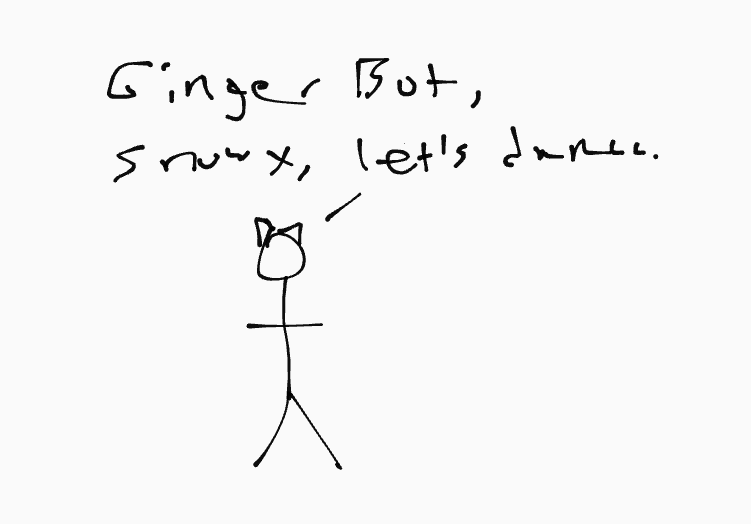 Ginger Bot,
snuwx, let's dance.